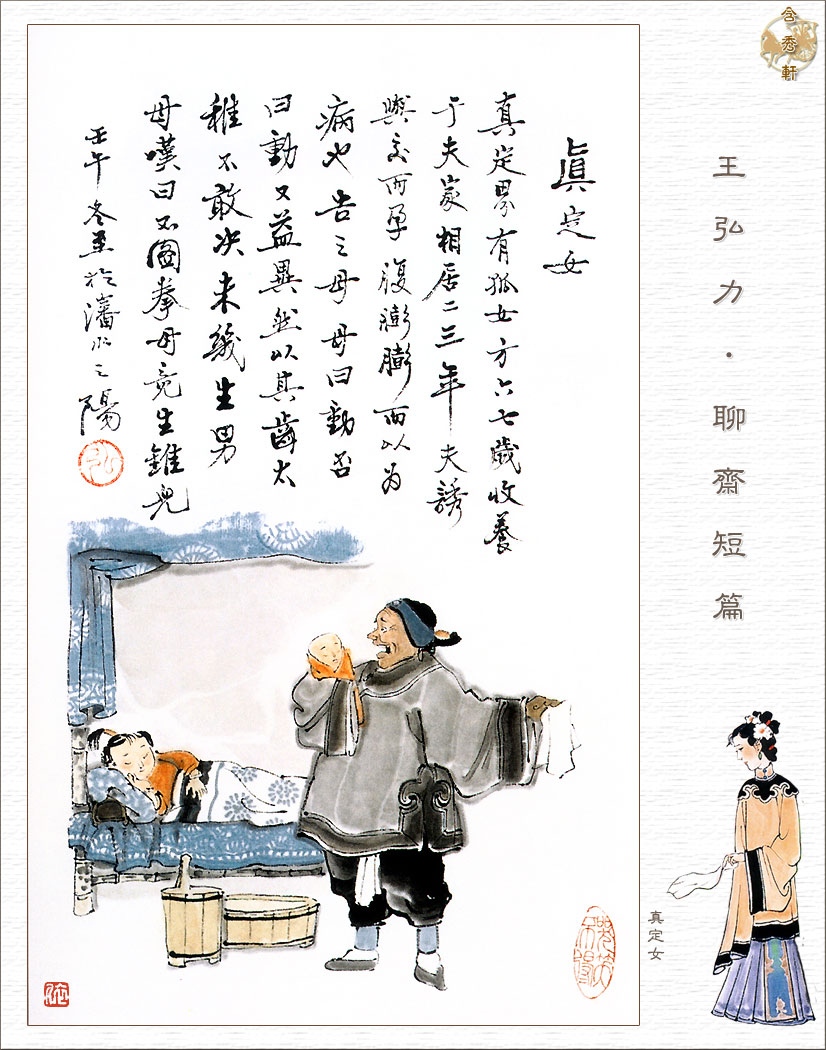 含秀軒
王弘力·聊齋短篇
眞定女
真定界有孤女方六七歲收養
于夫家相居二三年夫誘
與交而孕腹膨膨而以为
病也告之母母曰動否
曰動又益異然以其齒太
稚不敢决未幾生男
母嘆曰不圖拳母竟生錐兒
壬午冬於瀋水之陽
弘
真定女